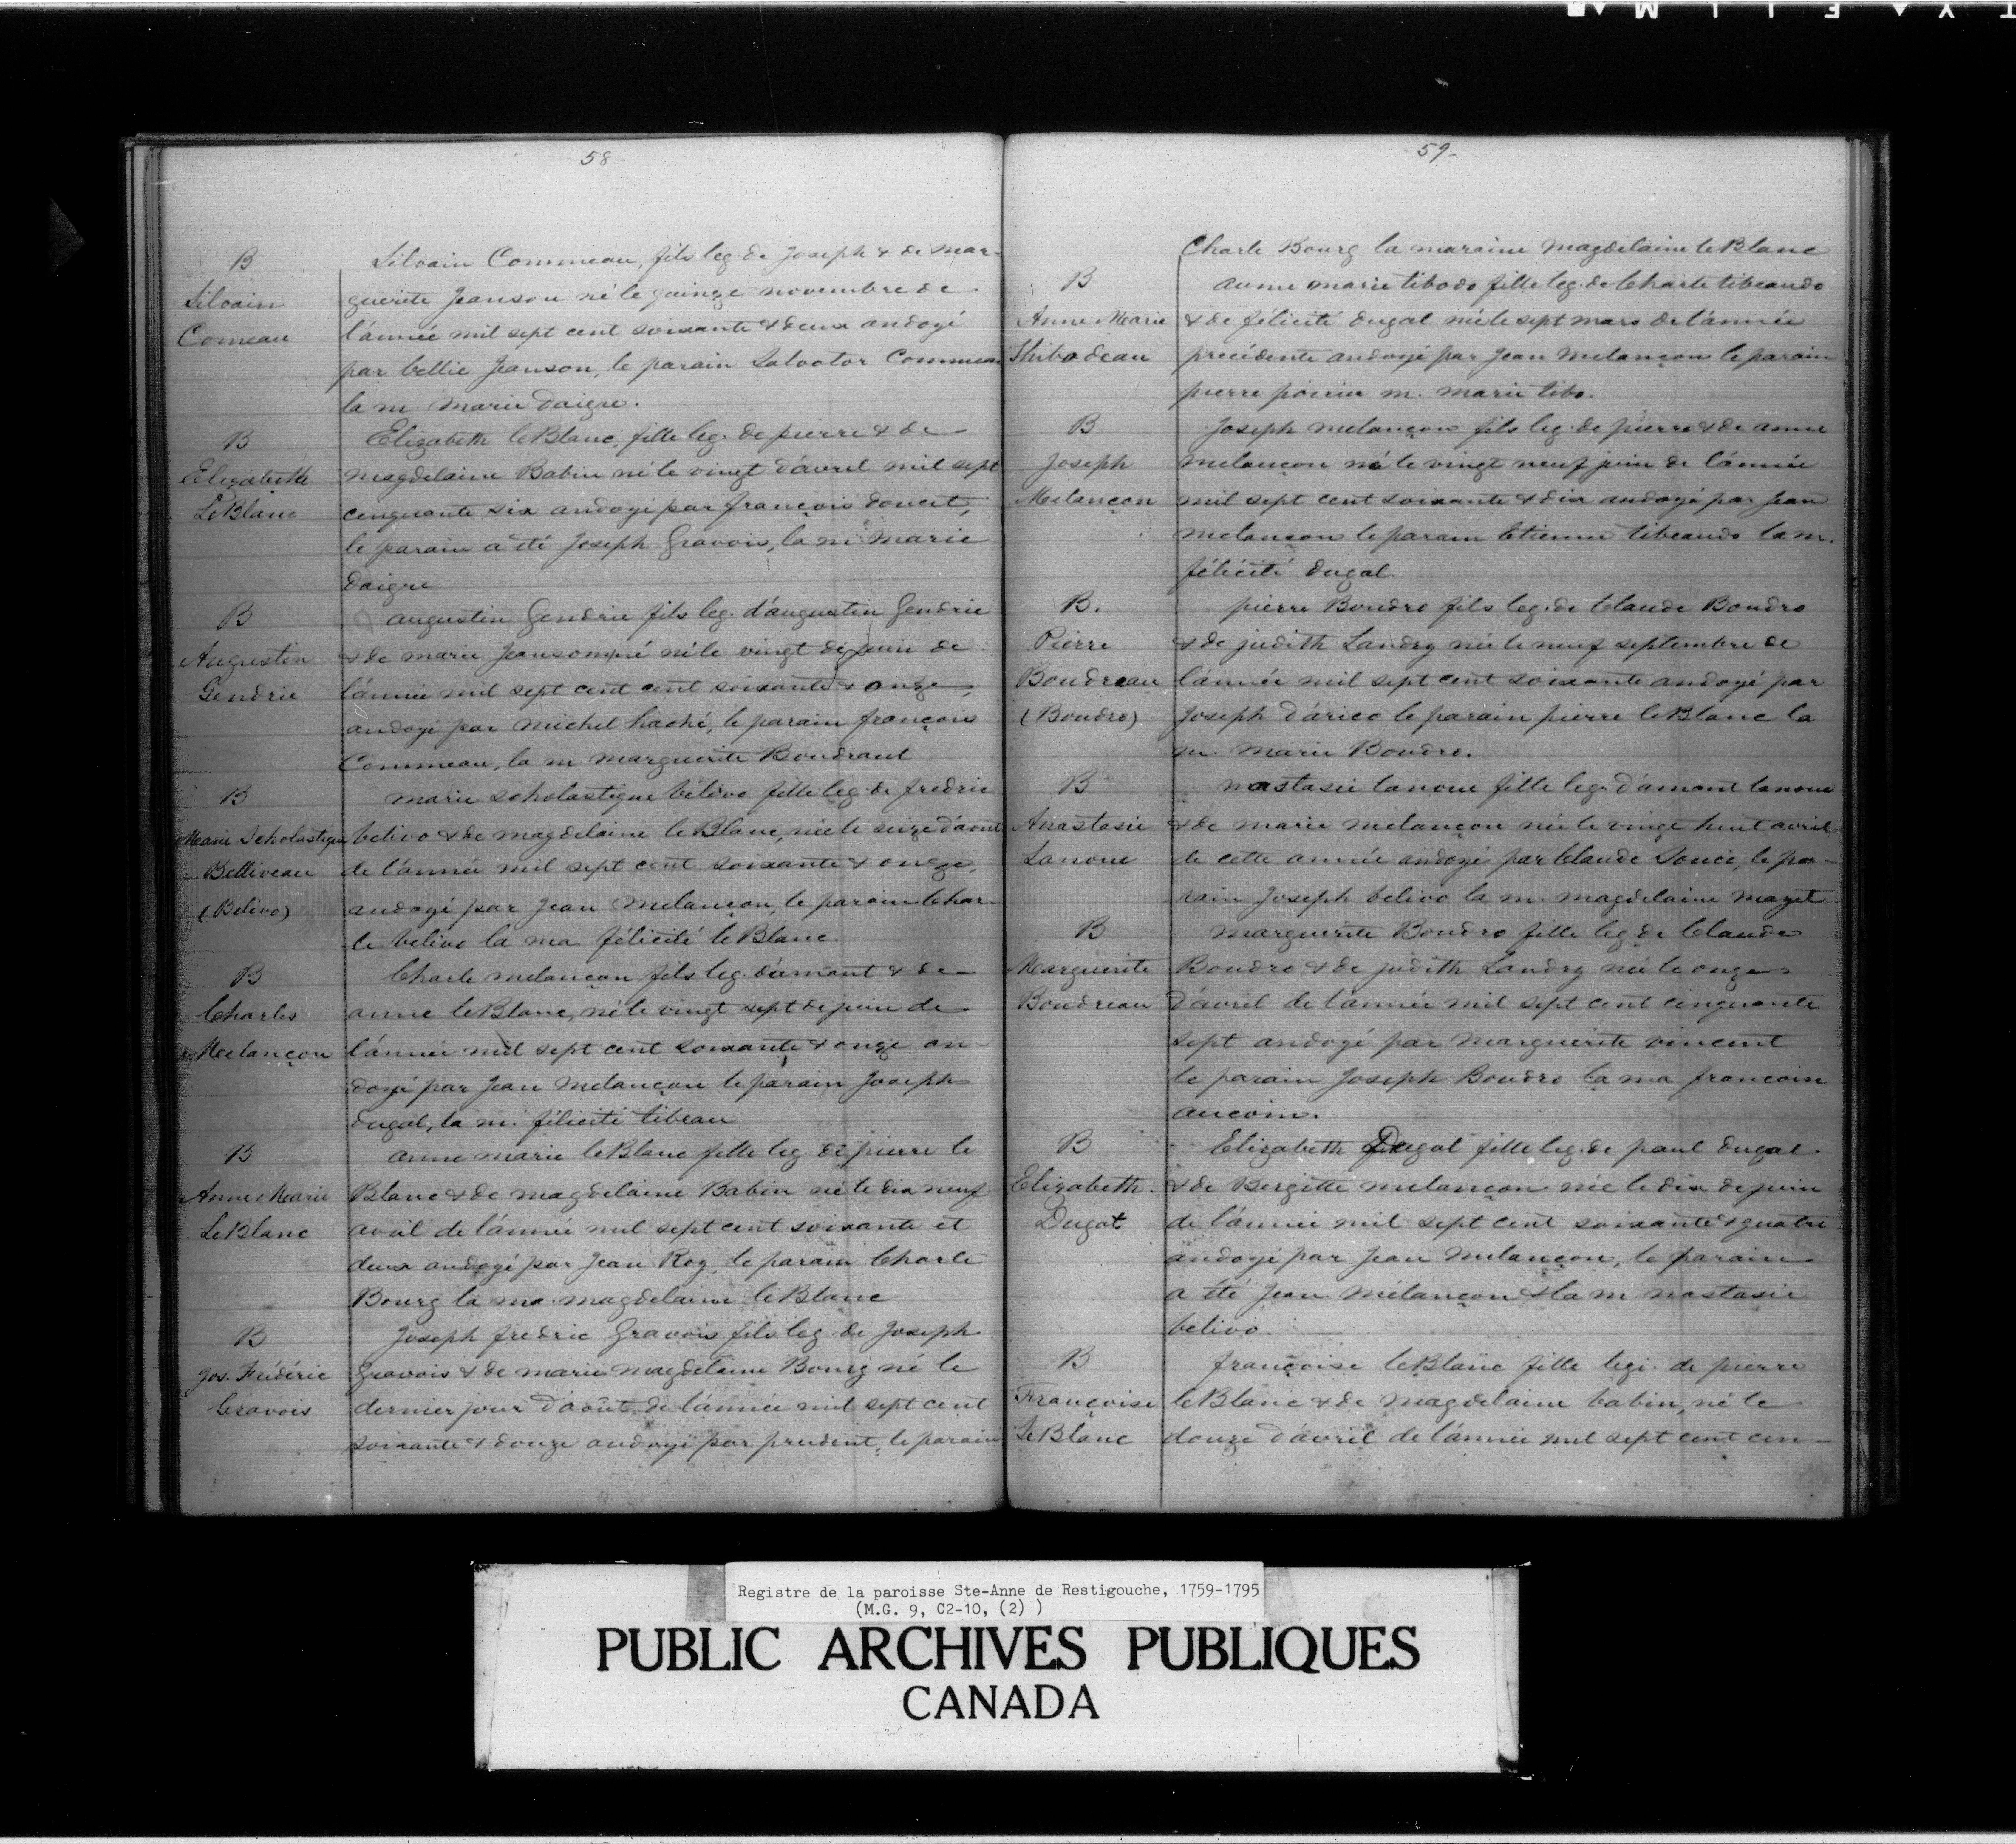 58-
B
Silvain
Comeau
Silvain Commeau, fils leg. de Joseph & de Mar-
guerite Jeanson né le quinze novembre de
l'année mil sept cent soixante & deux andoyé
par bellie Jeanson, le parain Salvator Commeau
la m. Marie Daigre.
B
Elizabeth
LeBlanc
Elizabeth leBlanc, fille leg. de pierre & de
magdelaine Babin né le vingt d'avril mil sept
cenquante six andoyé par françois doucet,
le parain a été Joseph Gravois, la m. Marie
Daigre
B
Augustin
Gendrie
augustin Gendrie fils leg. d'augustin Gendrie
& de marie Jeansonne né le vingt de juin de
l'année mil sept cent cent soixante & onze,
andoyé par michel haché, le parain françois
Commeau, la m marguerite Boudraut
B
Marie Scholastique
Belliveau
(Belivo)
marie scholastique bélivo fille leg. de fredric
belivo & de magdelaine le Blanc, née le seize d'aout
de l'année mil sept cent soixante & onze,
andoyé par Jean Melançon, le parain Char-
le belivo la ma. félicité le Blanc.
B
Charles
Melançon
Charle melançon fils leg. d'amant & de
anne leBlanc, né le vingt sept de juin de
l'année mil sept cent soixante & onze an-
doyé par Jean Melançon le parain Joseph
dugal, la m. félicité tibeau
B
Anne Marie
LeBlanc
anne marie leBlanc fille leg. de pierre le
Blanc & de magdelaine Babin né le dix neuf
avril de l'année mil sept cent soixante et
deux andoyé par Jean Roy, le parain Charle
Bourg la ma. magdelaine leBlanc
B
Jos. Frédéric
Gravois
Joseph fredric Gravois fils leg. de Joseph
Gravois & de marie magdelaine Bourg né le
dernier jour d'août de l'année mil sept cent
soixante & douze andoyé par prudent, le parain
59-
Charle Bourg la maraine Magdelaine leBlanc
B
Anne Marie
Thibodeau
anne marie tibodo fille leg. de Charle tibeaudo
& de félicité dugal née le sept mars de l'année
précédente andoyé par Jean Melançon le parain
pierre poirier m. marie tibo.
B
Joseph
Melançon
Joseph melançon fils leg. de pierre & de anne
melançon né le vingt neuf juin de l'année
mil sept cent soixante & dix andoyé par Jean
melançon le parain Etienne tibeaudo la m.
félicité dugal.
B.
Pierre
Boudreau
(Boudro)
pierre Boudro fils leg. de Claude Boudro
& de judith Landry née le neuf septembre de
l'année mil sept cent soixante andoyé par
Joseph d'arico le parain pierre leBlanc la
m. Marie Boudro.
B
Anastasie
Lanoue
nastasie lanoue fille leg. d'amant lanoue
& de marie melançon née le vingt huit avril
de cette année andoyé par Claude Souci, le pa-
rain Joseph belivo la m. magdelaine mazet
B
Marguerite
Boudreau
marguerite Boudro fille leg. de Claude
Boudro & de judith Landry née le onze
d'avril de l'année mil sept cent cinquante
sept andoyé par Marguerite vincent
le parain Joseph Boudro la ma françoise
aucoin.
B
Elizabeth
Dugat
Elizabeth Dugal fille leg. de paul dugal
& de Bergitte melançon née le dix de juin
de l'année mil sept cent soixante & quatre
andoyé par Jean Melançon, le parain
a été Jean Mélançon & la m nastasie
belivo.
B
Françoise
LeBlanc
françoise leBlanc fille legi. de pierre
leBlanc & de Magdelaine babin, né le
douze d'avril de l'année mil sept cent cin-
Registre de la paroisse Ste-Anne de Restigouche, 1759-1795
(M.G. 9, C2-10, (2) )
PUBLIC ARCHIVES PUBLIQUES
CANADA